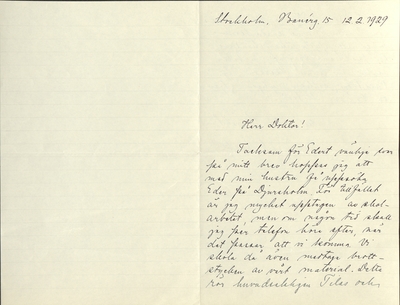 Stockholm, Banérg. 15 12.2.1929
Herr Doktor!
Tacksam för Edert vänliga svar
på mitt brev hoppas jag att
med min hustru få uppsöka
Eder på Djursholm. För tillfället
är jag mycket upptagen av skol-
arbetet, men om någon tid skall
jag per telefon höra efter, när
det passar att vi komma. Vi
skola då även medtaga brott-
stycken av vårt material. Detta
rör huvudsakligen Tilas och